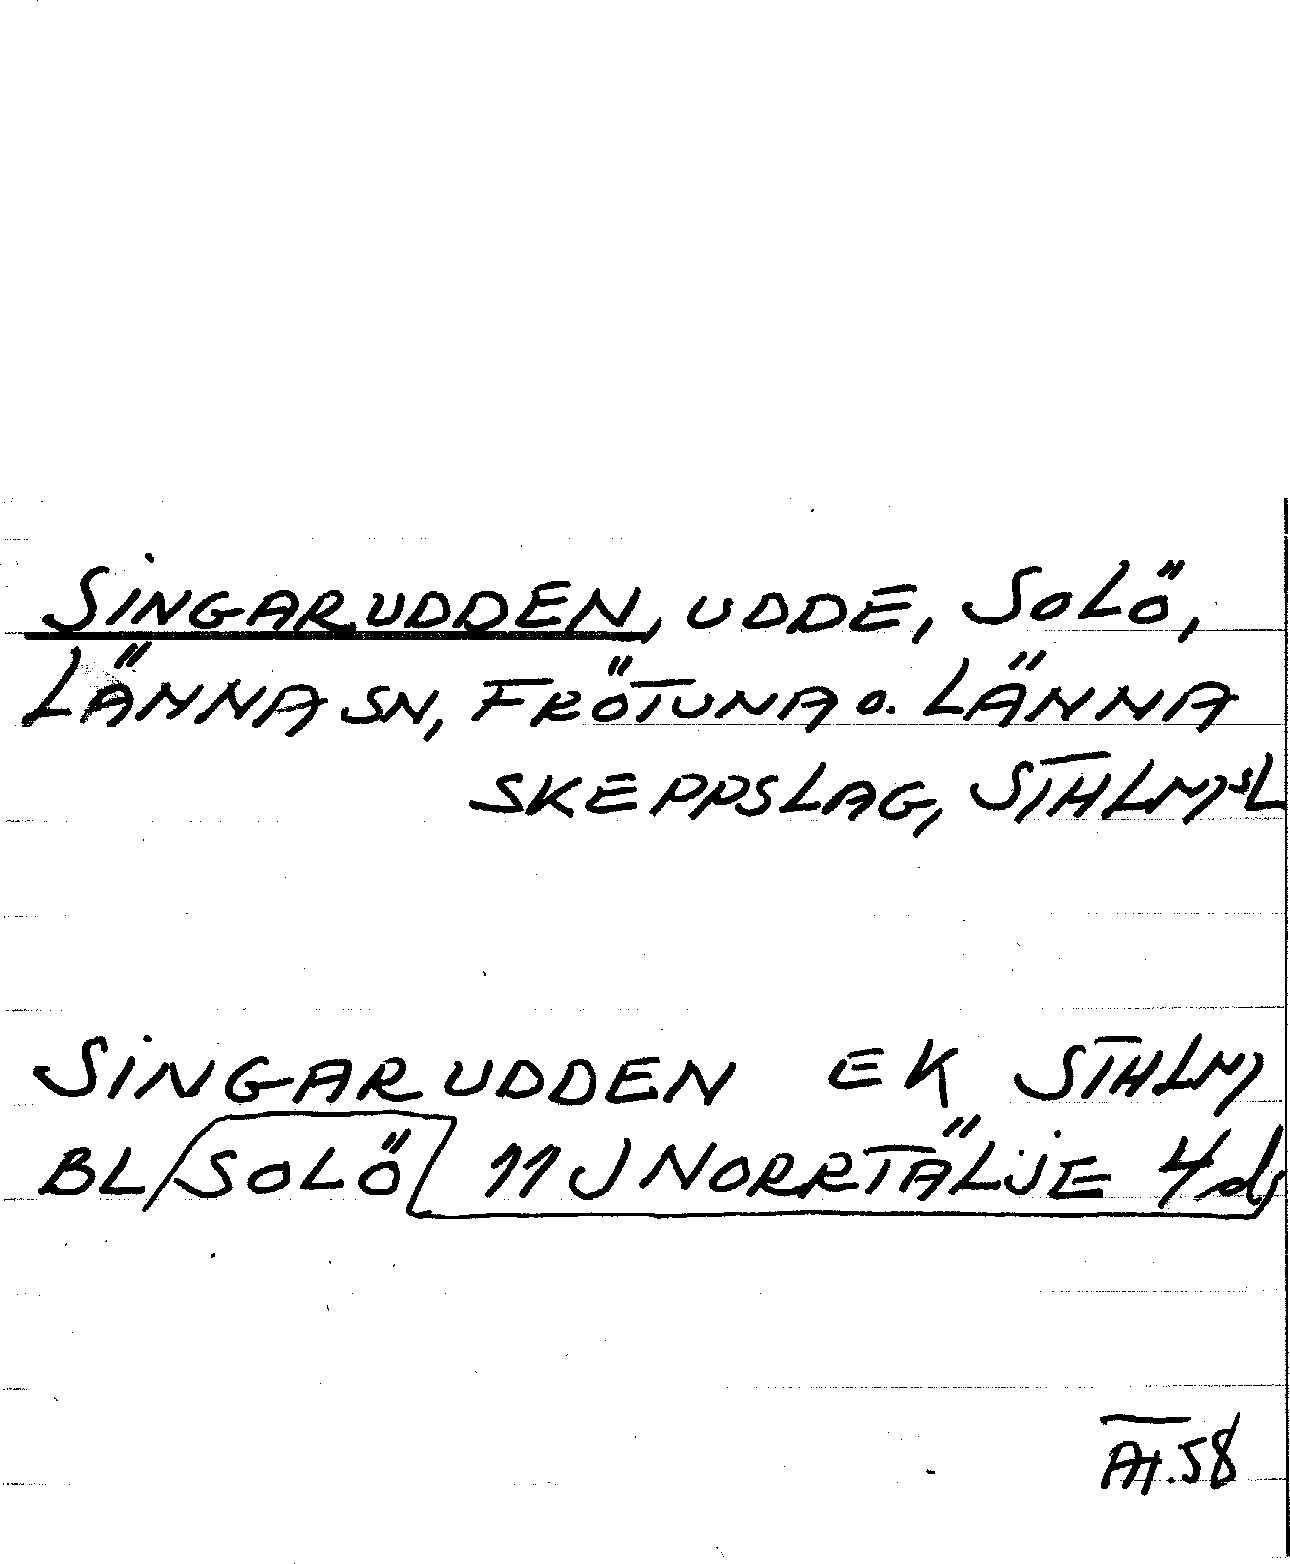 SINGARUDDEN, UDDE, SOLÖ,
LÄNNA SN, FRÖTUNA o. LÄNNA
SKEPPSLAG, STHLMSL
SINGARUDDEN EK STHLM
BL SOLÖ 11J NORRTÄLJE 4d
58